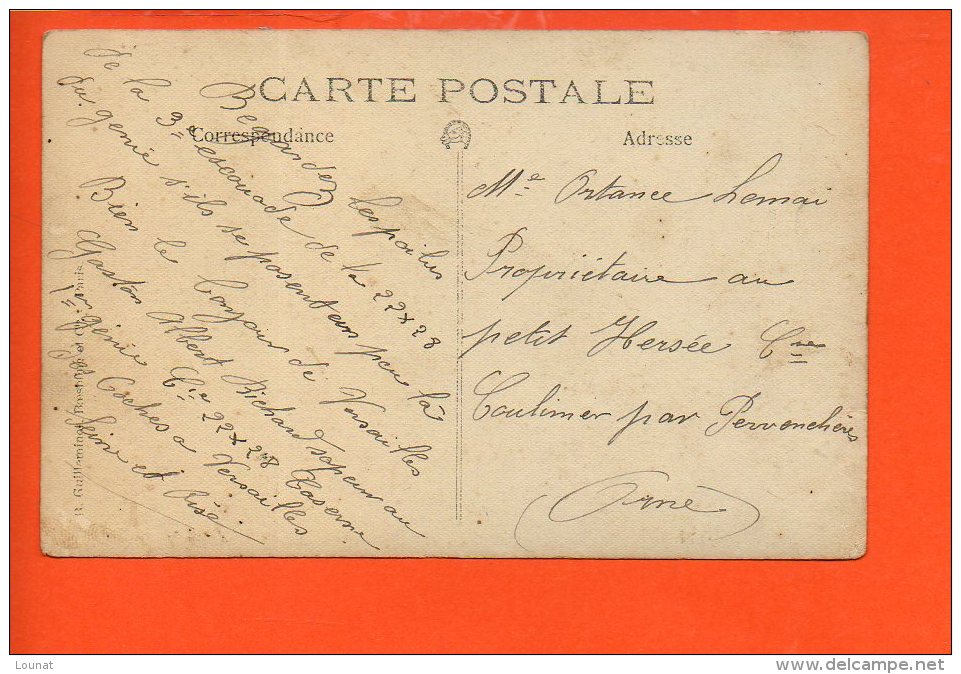 CARTE POSTALE
Correspondance
Adresse
Regardez les poilus
de la 3e escouade de la 22x28
du génie s'ils se posent un peu là
Bien le bonjour de Versailles
Gaston Albert Richard sapeur au
1er génie Cie 22x28 Caserne
des Coches a Versailles
Seine et Oise
Me Ortance Lemai
Propriétaire au
petit Hersée Cne
Coulimer par Pervenchères
(Orne)
R. Guilleminot, Boespflug et Cie, Paris
Lounat
www.delcampe.net